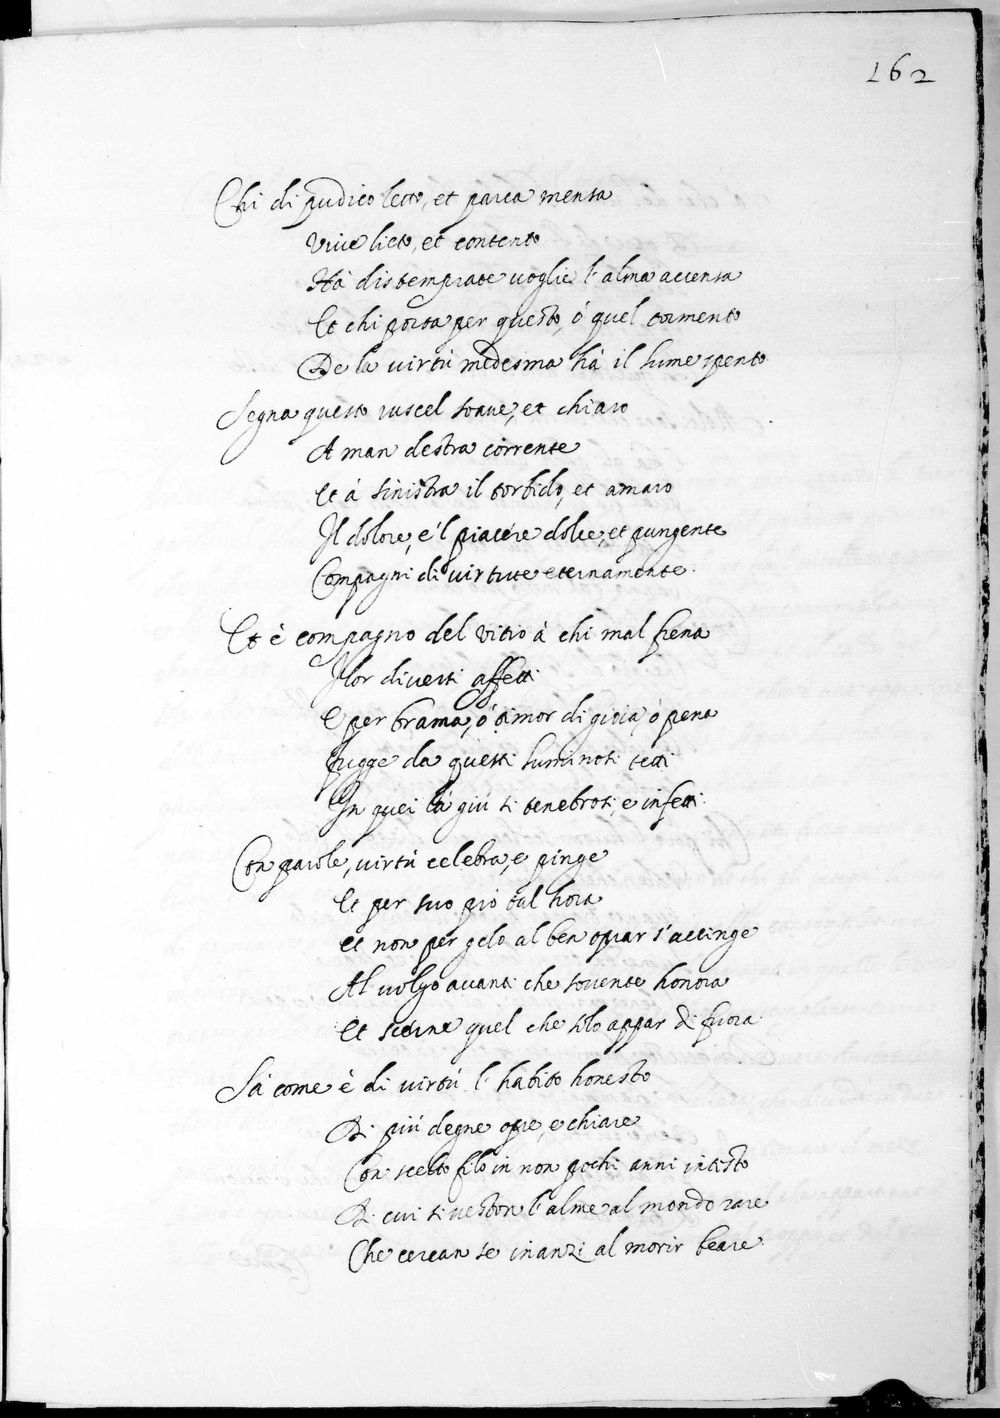 162
Chi di pudico letto, et parca mensa
Viue lieto, et contento
Hà distemprate uoglie l'alma accensa
Et chi porta per questo, ó quel tormento
De la uirtù medesma hà il lume spento
Segna questo ruscel soaue, et chiaro
A man destra corrente
Et á sinistra il torbido, et amaro
Il dolore, e'l piacére dolce, et pungente
Compagni di uirtute eternamente.
Et è compagno del Vitio à chi mal frena
I lor diuersi affetti
E per brama, ó timor di gioia, ó pena
fugge da questi luminosi tetti
In quei là giú si tenebrosi, e infetti.
Con parole, uirtù celebra, e pinge
Et per suo prò tal hora
et non per gelo al ben oprar s'accinge
Al uolgo auanti che souente honora
Et scerne quel che solo appar di fuora.
Sà come è di uirtù l'habito honesto
Di piú degne opre, e chiare
Con scelto filo in non pochi anni intesto
Di cui si ueston l'alme al mondo rare
Che cercan se inanzi al morir beare.